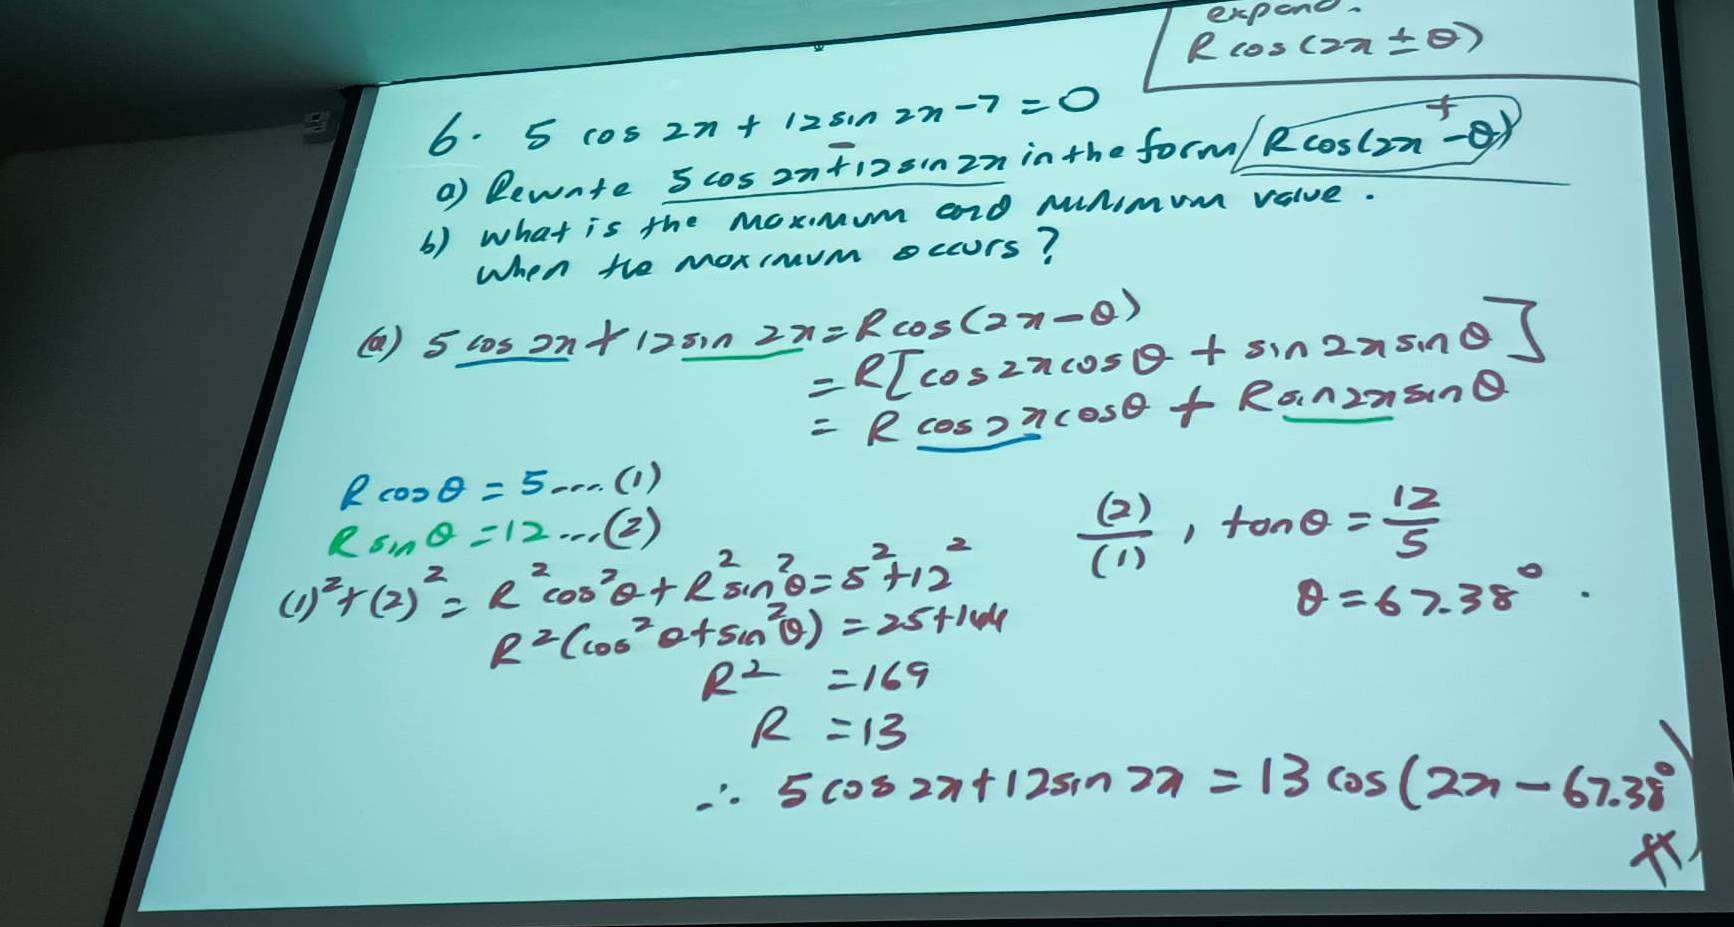 expand.
R cos (2x ± θ)
6. 5 cos 2x + 12 sin 2x - 7 = 0
a) Rewrite 5 cos 2x + 12 sin 2x in the form R cos(2x - θ)
+
b) What is the maximum and minimum value.
When the maximum occurs?
(a) 5 cos 2x + 12 sin 2x = R cos(2x - θ)
= R[cos 2x cos θ + sin 2x sin θ]
= R cos 2x cos θ + R sin 2x sin θ
R cos θ = 5 .... (1)
R sin θ = 12 ... (2)
(1)² + (2)² = R² cos² θ + R² sin² θ = 5² + 12²
R² (cos² θ + sin² θ) = 25 + 144
R² = 169
R = 13
(2)/(1), tan θ = 12/5
θ = 67.38° .
∴ 5 cos 2x + 12 sin 2x = 13 cos (2x - 67.38°)